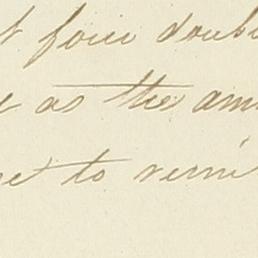 t four doubl
e as the am
et to remi